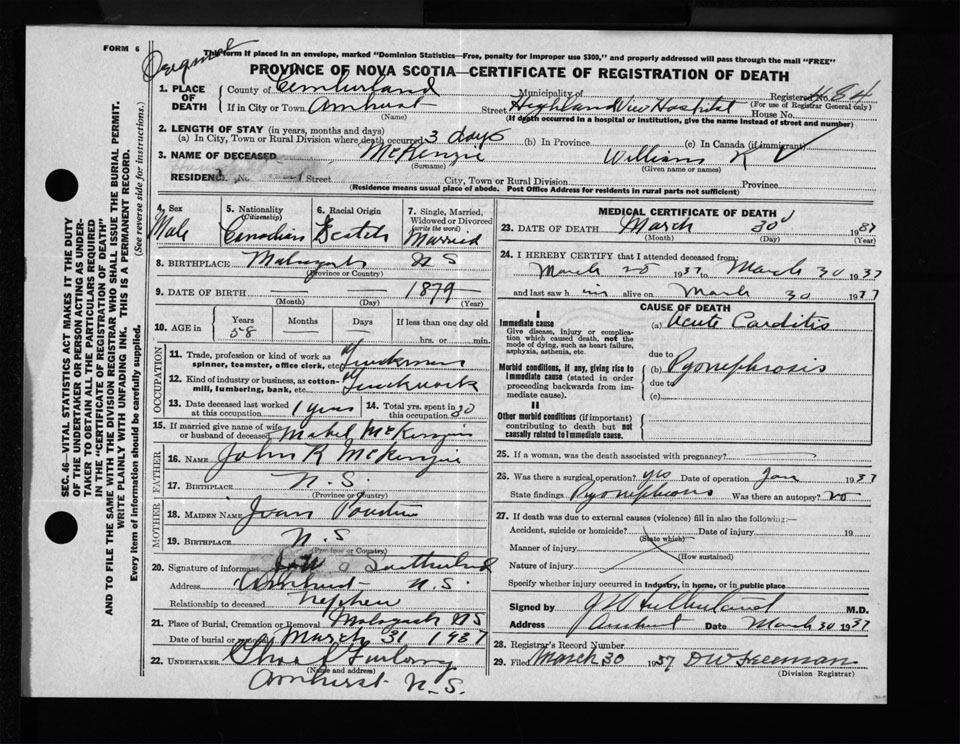 FORM 6
This form if placed in an envelope, marked "Dominion Statistics—Free, penalty for improper use $300," and properly addressed will pass through the mail "FREE"
PROVINCE OF NOVA SCOTIA—CERTIFICATE OF REGISTRATION OF DEATH
SEC. 46—VITAL STATISTICS ACT MAKES IT THE DUTY
OF THE UNDERTAKER OR PERSON ACTING AS UNDER-
TAKER TO OBTAIN ALL THE PARTICULARS REQUIRED
IN THE "CERTIFICATE OF REGISTRATION OF DEATH"
AND TO FILE THE SAME WITH THE DIVISION REGISTRAR WHO SHALL ISSUE THE BURIAL PERMIT.
WRITE PLAINLY WITH UNFADING INK. THIS IS A PERMANENT RECORD.
Every item of information should be carefully supplied. (See reverse side for instructions.)
1. PLACE OF DEATH County of Cumberland Municipality of Registered No. 484
If in City or Town Amherst Street Highland View Hospital House No. (For use of Registrar General only)
(Name) (If death occurred in a hospital or institution, give the name instead of street and number)
2. LENGTH OF STAY (in years, months and days)
(a) In City, Town or Rural Division where death occurred 3 days (b) In Province (c) In Canada (if immigrant)
3. NAME OF DECEASED McKenzie William
(Surname) (Given name or names)
RESIDENCE No. Street City, Town or Rural Division Province
(Residence means usual place of abode. Post Office Address for residents in rural parts not sufficient)
4. Sex Male
5. Nationality (Citizenship) Canadian
6. Racial Origin Scotch
7. Single, Married, Widowed or Divorced (write the word) Married
8. BIRTHPLACE Malagash N S
(Province or Country)
9. DATE OF BIRTH — 1879
(Month) (Day) (Year)
10. AGE in Years 58 Months Days If less than one day old
hrs. or min.
OCCUPATION
11. Trade, profession or kind of work as spinner, teamster, office clerk, etc. Truckman
12. Kind of industry or business, as cotton-mill, lumbering, bank, etc. Truckwork
13. Date deceased last worked at this occupation 1 year 14. Total yrs. spent in this occupation 30
15. If married give name of wife or husband of deceased Mabel McKenzie
FATHER
16. NAME John R McKenzie
17. BIRTHPLACE N. S.
(Province or Country)
MOTHER
18. MAIDEN NAME
19. BIRTHPLACE N. S
(Province or Country)
20. Signature of informant Sutherland
Address Amherst N. S.
Relationship to deceased nephew
21. Place of Burial, Cremation or Removal Malagash NS
Date of burial or removal March 31 1937
22. UNDERTAKER Furlong
(Name and address)
Amherst N. S.
MEDICAL CERTIFICATE OF DEATH
23. DATE OF DEATH March 30 1937
(Month) (Day) (Year)
24. I HEREBY CERTIFY that I attended deceased from:
March 1937 to March 30 1937
and last saw him alive on March 30 1937
CAUSE OF DEATH
I
Immediate cause
Give disease, injury or complication which caused death, not the mode of dying, such as heart failure, asphyxia, asthenia, etc.
(a) Acute Carditis
due to
Morbid conditions, if any, giving rise to immediate cause (stated in order proceeding backwards from immediate cause).
(b) Pyonephrosis
due to
(c)
II
Other morbid conditions (if important) contributing to death but not causally related to immediate cause.
25. If a woman, was the death associated with pregnancy?
26. Was there a surgical operation? yes Date of operation Jan 1937
State findings Pyonephrosis Was there an autopsy? no
27. If death was due to external causes (violence) fill in also the following:—
Accident, suicide or homicide? Date of injury 19
(State which)
Manner of injury
(How sustained)
Nature of injury
Specify whether injury occurred in industry, in home, or in public place
Signed by M.D.
Address Amherst Date March 30 1937
28. Registrar's Record Number
29. Filed March 30 1937 D W Freeman
(Division Registrar)